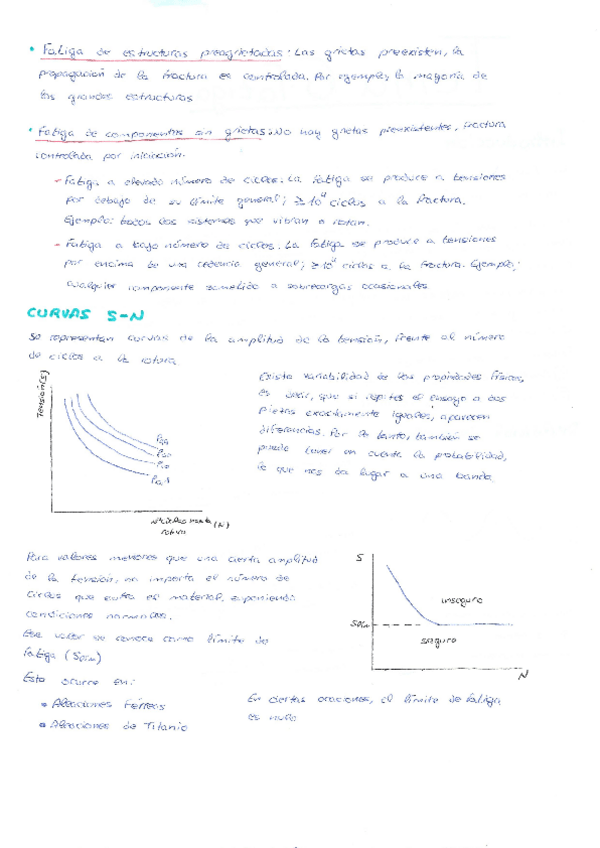 • Fatiga de estructuras preagrietadas: Las grietas preexisten, la
propagación de la fractura es controlada. Por ejemplo, la mayoría de
las grandes estructuras
• Fatiga de componentes sin grietas: No hay grietas preexistentes, fractura
controlada por iniciación.
- Fatiga a elevado número de ciclos. La fatiga se produce a tensiones
por debajo de su límite general; ≥10⁴ ciclos a la fractura.
Ejemplo: todos los sistemas que vibran o rotan.
- Fatiga a bajo número de ciclos. La fatiga se produce a tensiones
por encima de una cedencia general; ≥10⁴ ciclos a la fractura. Ejemplo;
cualquier componente sometido a sobrecargas ocasionales
CURVAS S-N
Se representan curvas de la amplitud de la tensión, frente al número
de ciclos a la rotura
Existe variabilidad de las propiedades físicas,
es decir, que si repites el ensayo a dos
piezas exactamente iguales, aparecen
diferencias. Por lo tanto, también se
puede tener en cuenta la probabilidad,
lo que nos da lugar a una banda.
Tensión(S)
P99
P50
P10
P0,1
Nº ciclos hasta (N)
rotura
Para valores menores que una cierta amplitud
de la tensión, no importa el número de
ciclos que sufra el material, suponiendo
condiciones normales.
Ese valor se conoce como límite de
fatiga (Sfl)
Esto ocurre en:
• Aleaciones Férreas
• Aleaciones de Titanio
S
inseguro
seguro
N
En ciertas ocasiones, el límite de fatiga
es nulo